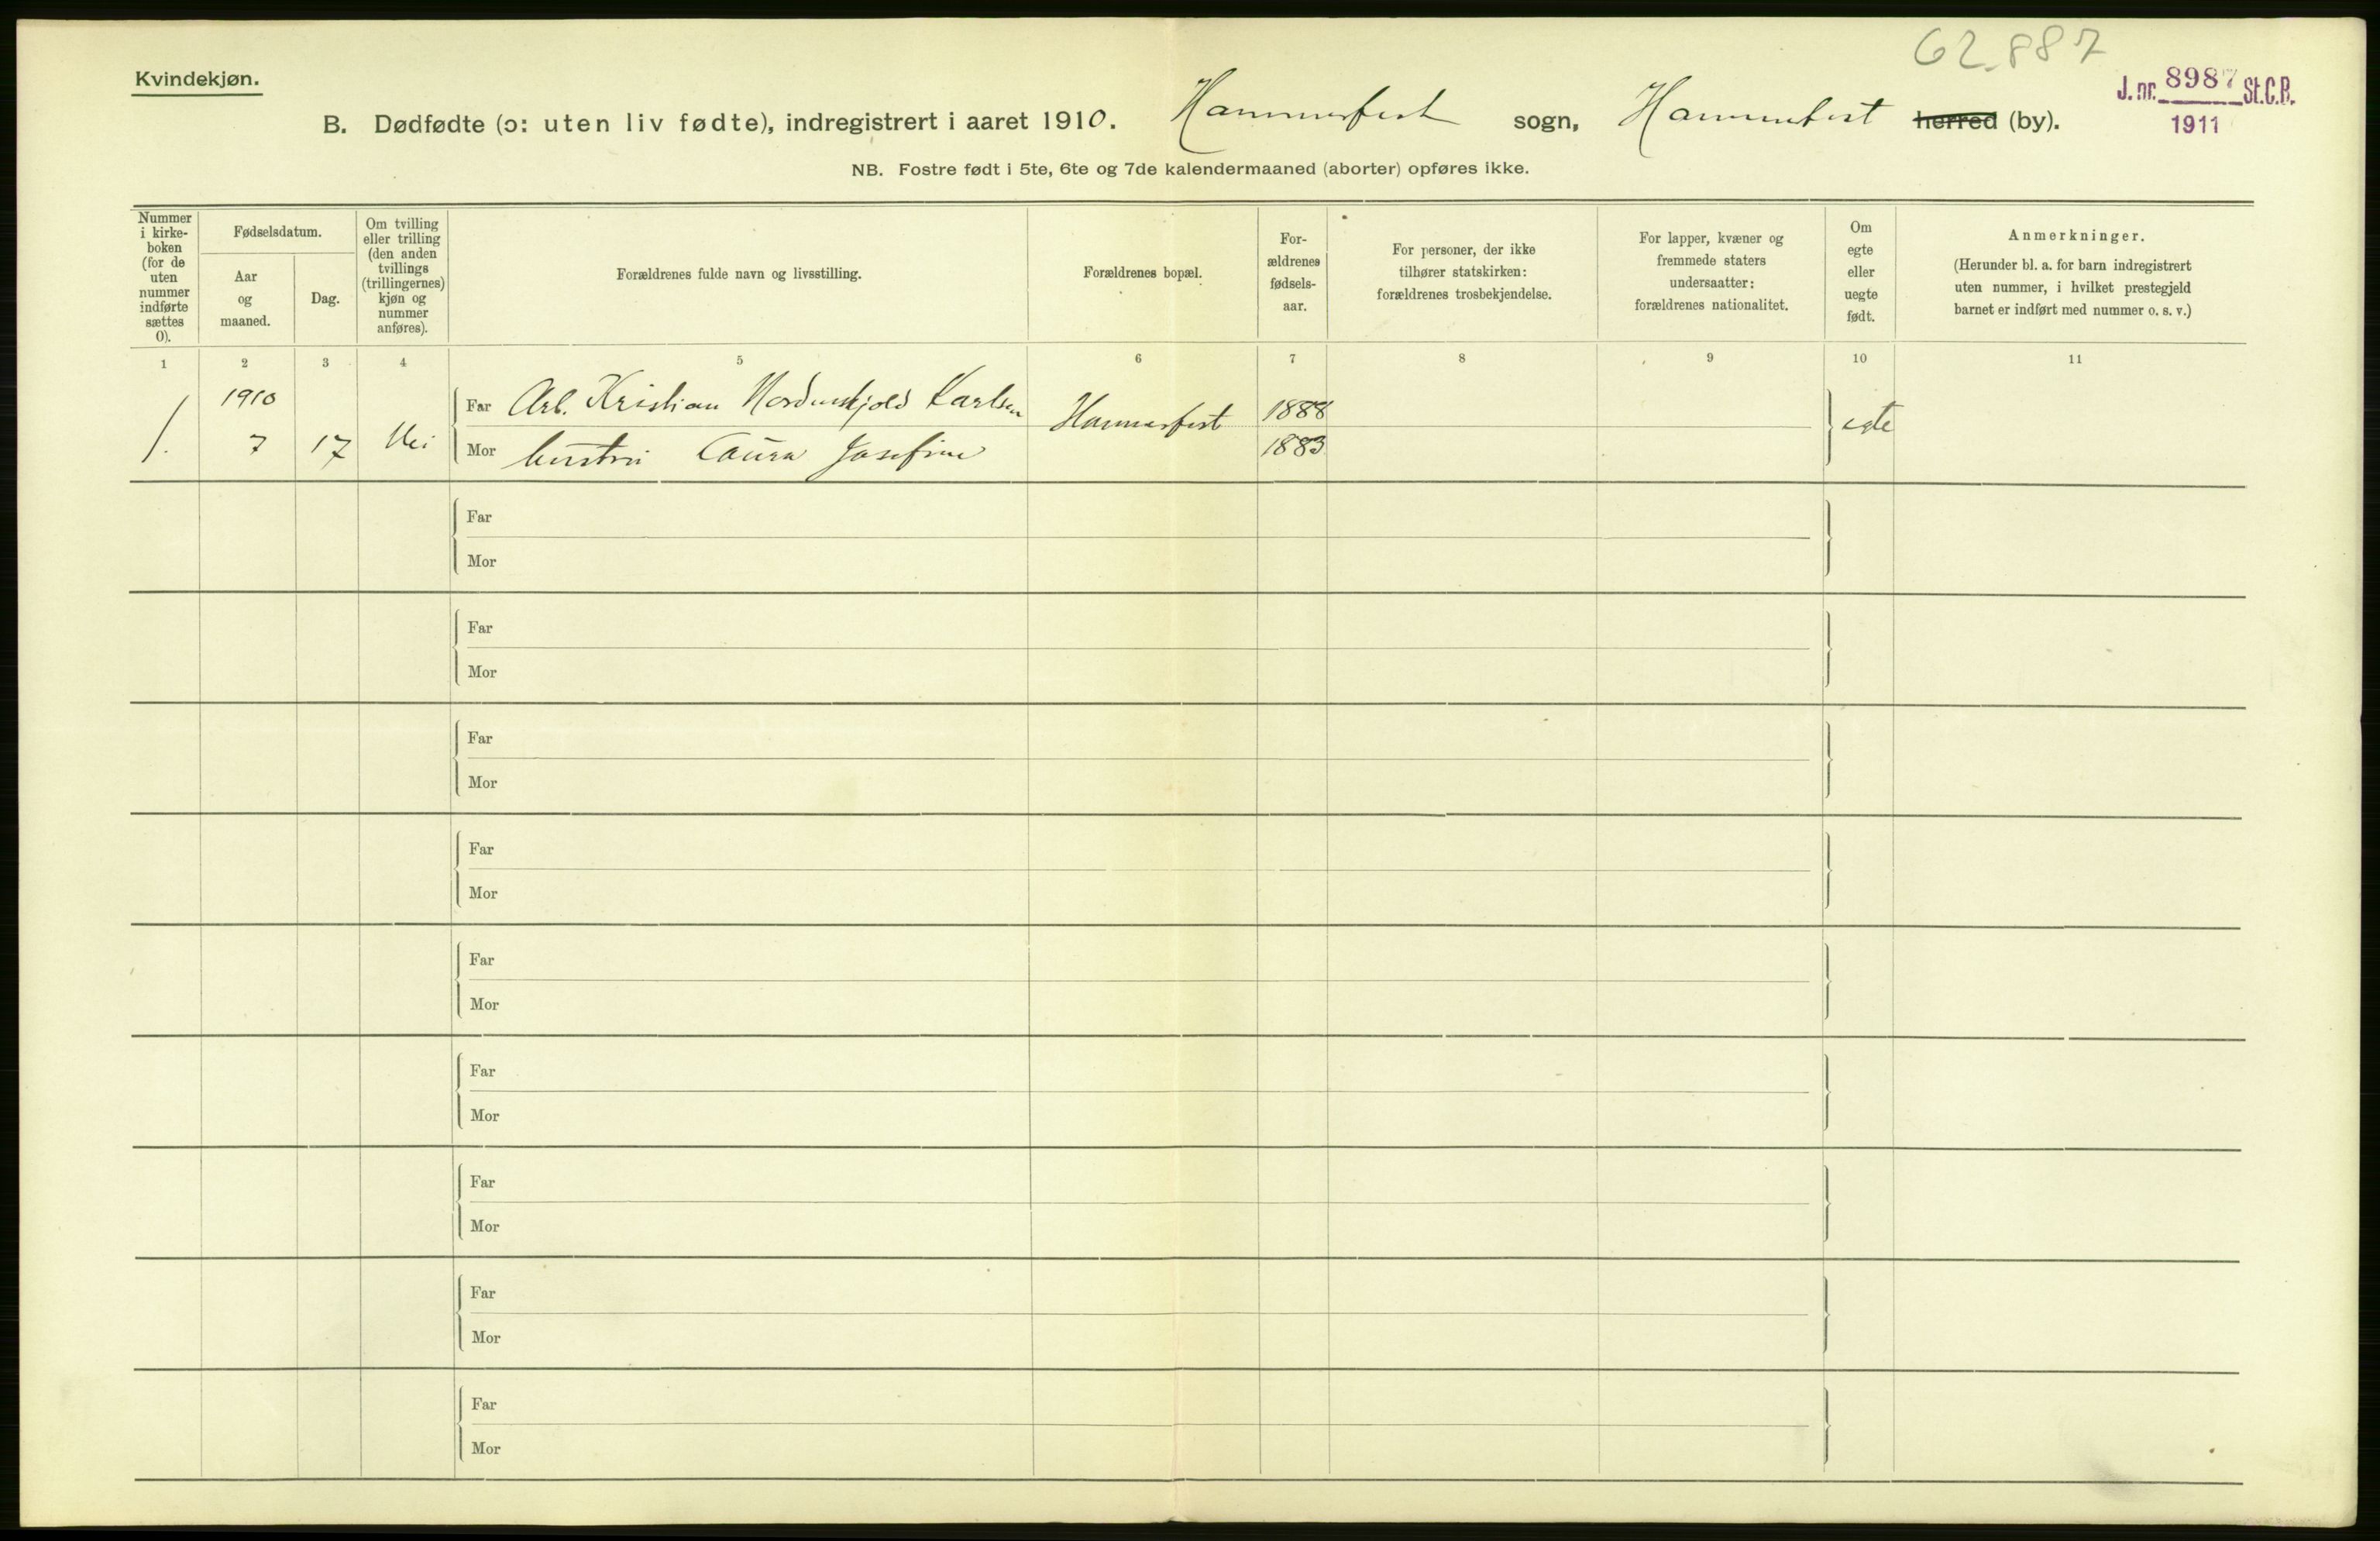 62.887
Kvindekjøn.
J. nr. 8987 St.C.B.
1911
B. Dødfødte (ɔ: uten liv fødte), indregistrert i aaret 1910. Hammerfest sogn, Hammerfest herred (by).
NB. Fostre født i 5te, 6te og 7de kalendermaaned (aborter) opføres ikke.
Nummer
i kirke-
boken
(for de
uten
nummer
indførte
sættes
0).
Fødselsdatum.
Aar
og
maaned.
Dag.
Om tvilling
eller trilling
(den anden
tvillings
(trillingernes)
kjøn og
nummer
anføres).
Forældrenes fulde navn og livsstilling.
Forældrenes bopæl.
For-
ældrenes
fødsels-
aar.
For personer, der ikke
tilhører statskirken:
forældrenes trosbekjendelse.
For lapper, kvæner og
fremmede staters
undersaatter:
forældrenes nationalitet.
Om
egte
eller
uegte
født.
Anmerkninger.
(Herunder bl. a. for barn indregistrert
uten nummer, i hvilket prestegjeld
barnet er indført med nummer o. s. v.)
1 2 3 4 5 6 7 8 9 10 11
1910
Far Arb. Kristian Nordenskjold Karlsen Hammerfest 1888 egte
1. 7 17 Nei Mor hustru Laura Josefine 1883
Far
Mor
Far
Mor
Far
Mor
Far
Mor
Far
Mor
Far
Mor
Far
Mor
Far
Mor
Far
Mor